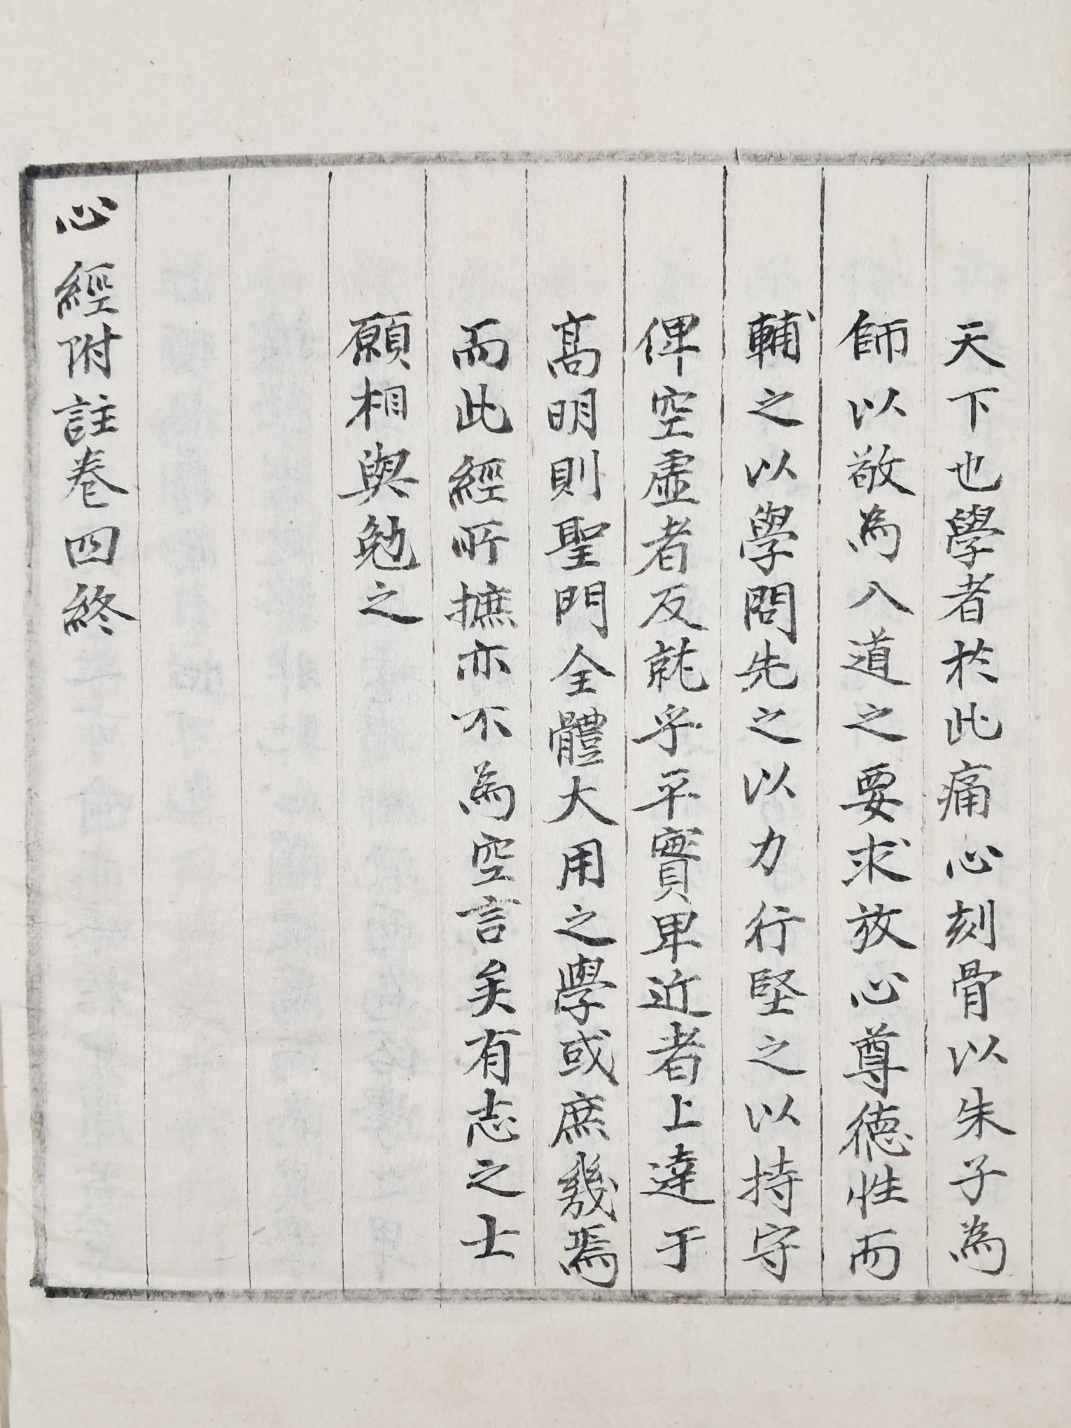 天下也學者於此痛心刻骨以朱子為
師以敬為入道之要求放心尊德性而
輔之以學問先之以力行堅之以持守
俾空虛者反就乎平實卑近者上達于
高明則聖門全體大用之學或庶幾焉
而此經所摭亦不為空言矣有志之士
願相與勉之
心經附註卷四終